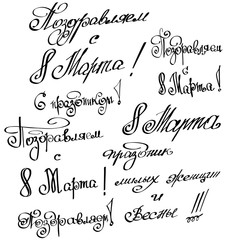 Поздравляем
с
8 Марта!
Поздравляем
с
8 Марта!
С праздником!
Поздравляем
с
8 Марта!
8 Марта
праздник
милых женщин
и
Весны!!!
Поздравляем!